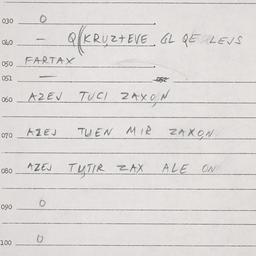 030 0
040 — Q(KRUZ+EVE GL QE LEJS
050 FARTAX
051 —
060 AZEJ TUCI ZAXON
070 AZEJ TUEN MIR ZAXON
080 AZEJ TUTIR ZAX ALE ON
090 0
100 0